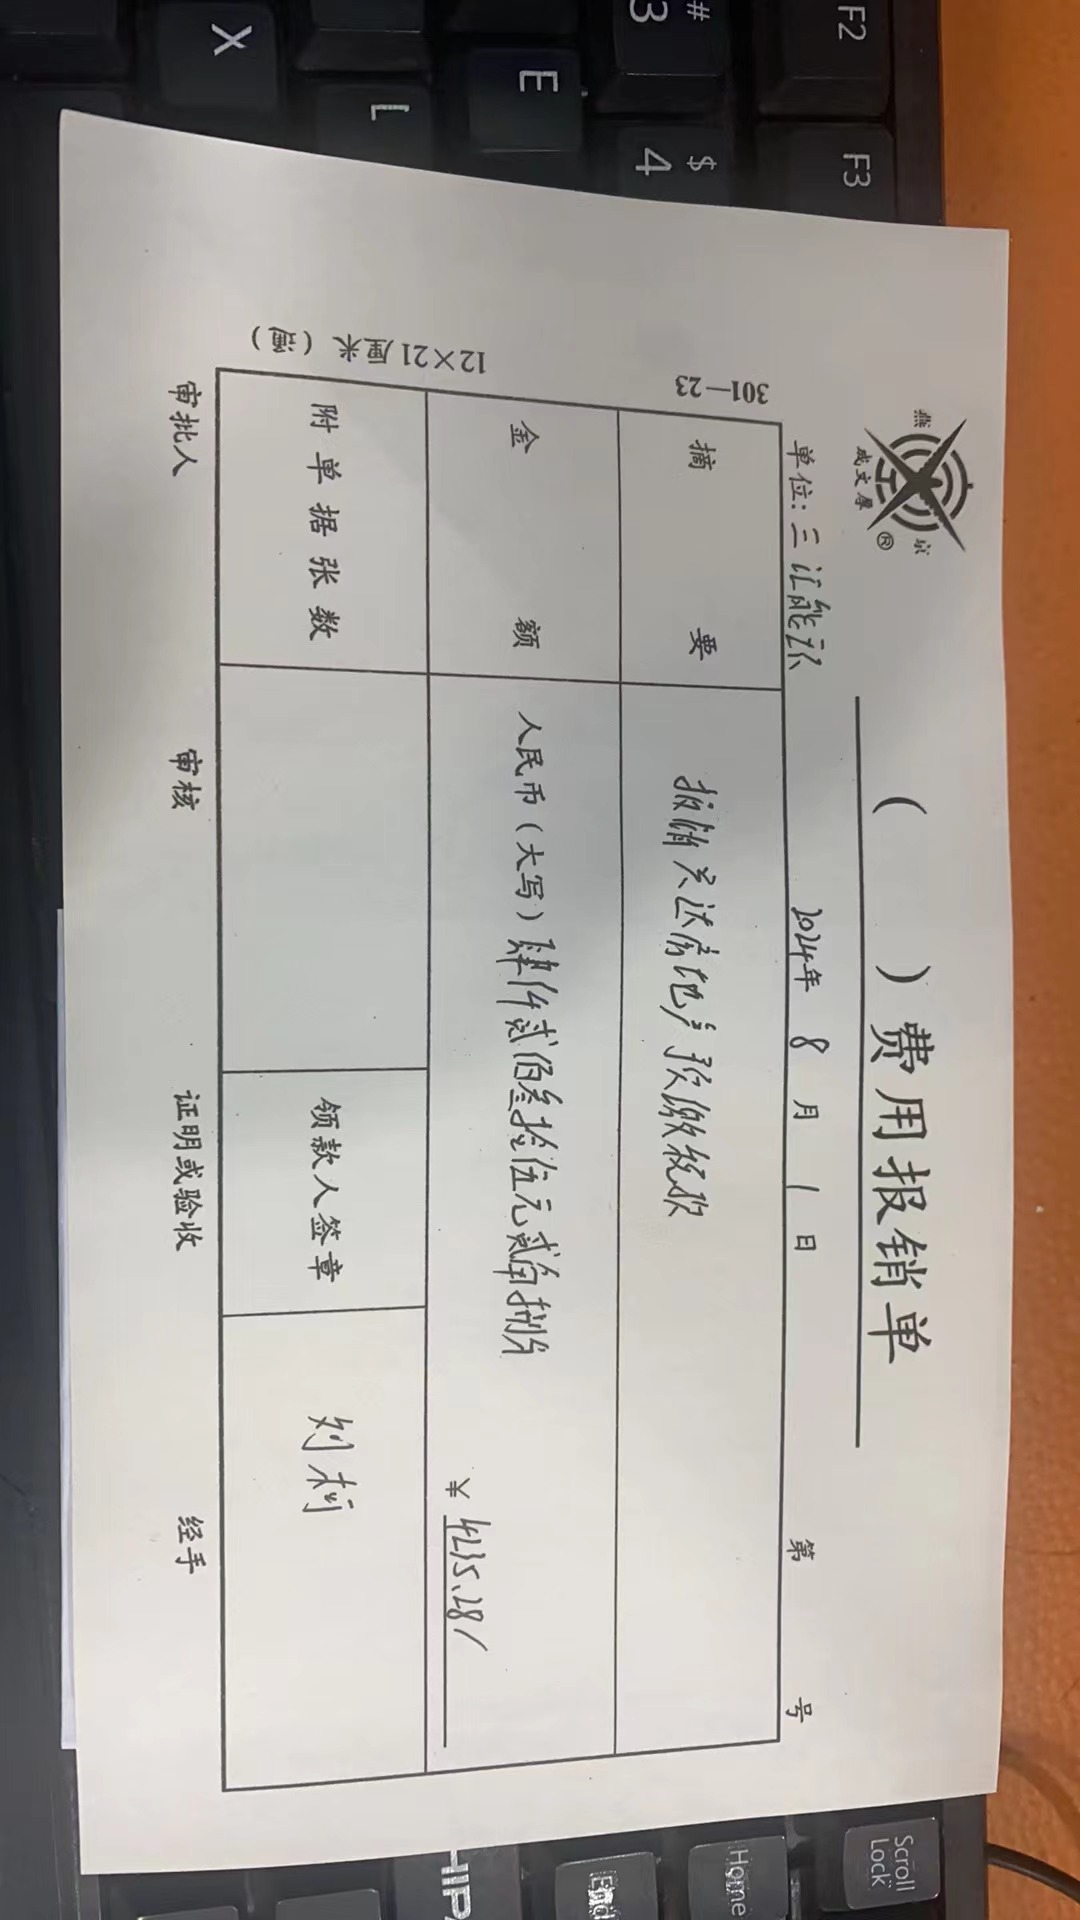 燕京
成文厚
®
（ ）费用报销单
单位：三汇能环
2024年 8 月 1 日
第 号
摘要
报销兴达房地产预缴税款
金额
人民币（大写）肆仟贰佰叁拾伍元贰角捌分
¥ 4235.28/
附单据张数
领款人签章
刘柯
审批人 审核 证明或验收 经手
301—23
12×21厘米（通）
F2
F3
#
3
$
4
E
X
L
Scroll
Lock
Home
End